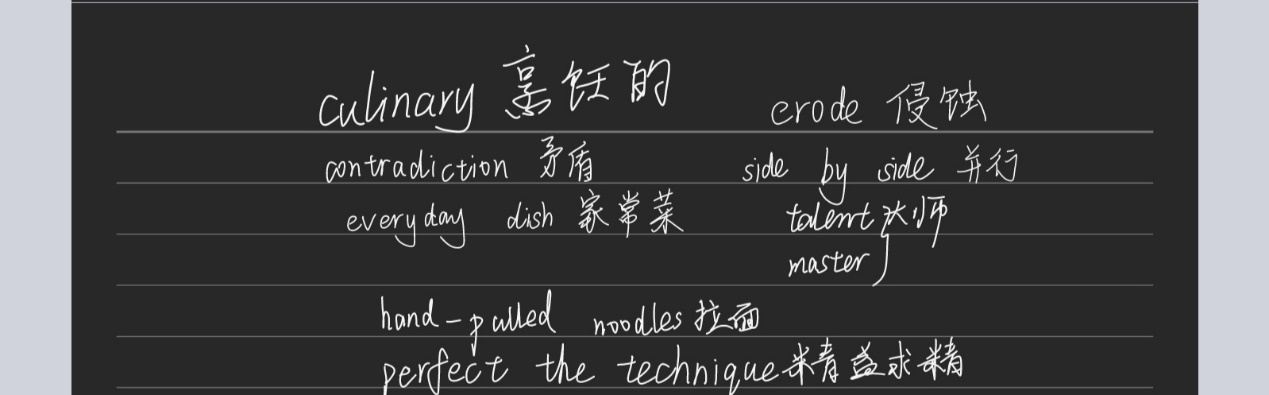 culinary 烹饪的 erode 侵蚀
contradiction 矛盾 side by side 并行
everyday dish 家常菜 talent 大师
master
hand-pulled noodles 拉面
perfect the technique 精益求精